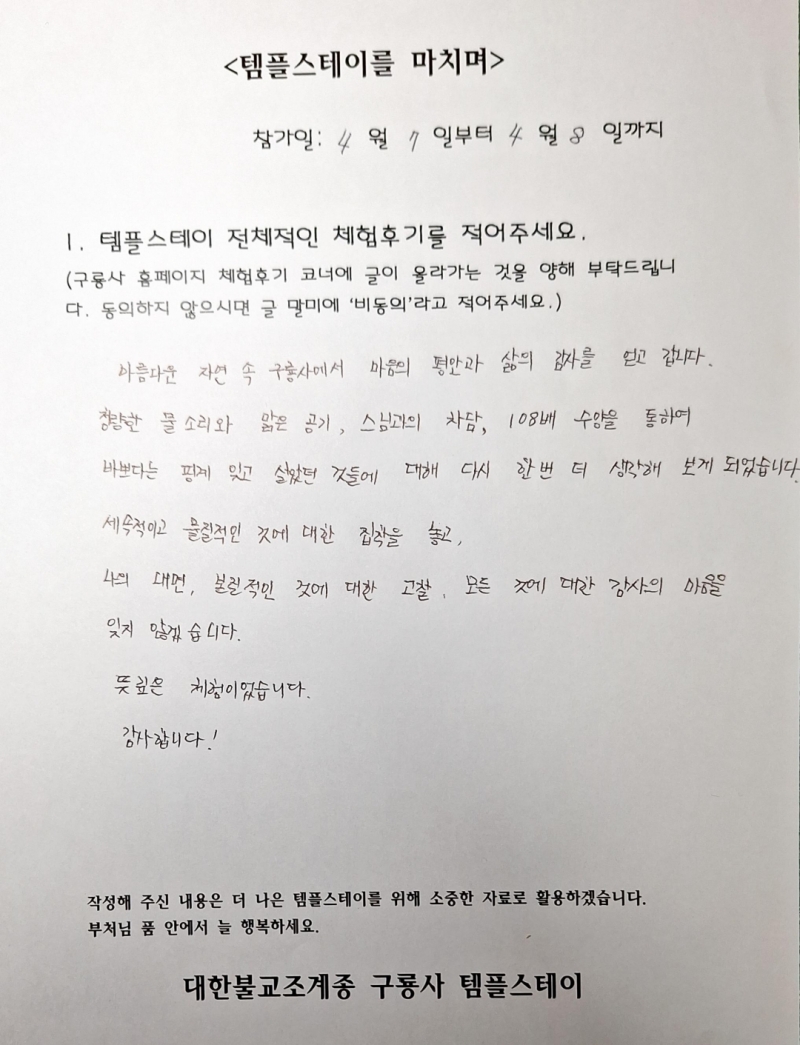 <템플스테이를 마치며>
참가일: 4 월 7 일부터 4 월 8 일까지
1. 템플스테이 전체적인 체험후기를 적어주세요.
(구룡사 홈페이지 체험후기 코너에 글이 올라가는 것을 양해 부탁드립니
다. 동의하지 않으시면 글 말미에 '비동의'라고 적어주세요.)
아름다운 자연 속 구룡사에서 마음의 평안과 삶의 감사를 얻고 갑니다.
청량한 물 소리와 맑은 공기, 스님과의 차담, 108배 수양을 통하여
바쁘다는 핑계 잊고 살았던 것들에 대해 다시 한번 더 생각해 보게 되었습니다.
세속적이고 물질적인 것에 대한 집착을 놓고,
나의 내면, 본질적인 것에 대한 고찰, 모든 것에 대한 감사의 마음을
잊지 않겠습니다.
뜻깊은 체험이었습니다.
감사합니다!
작성해 주신 내용은 더 나은 템플스테이를 위해 소중한 자료로 활용하겠습니다.
부처님 품 안에서 늘 행복하세요.
대한불교조계종 구룡사 템플스테이